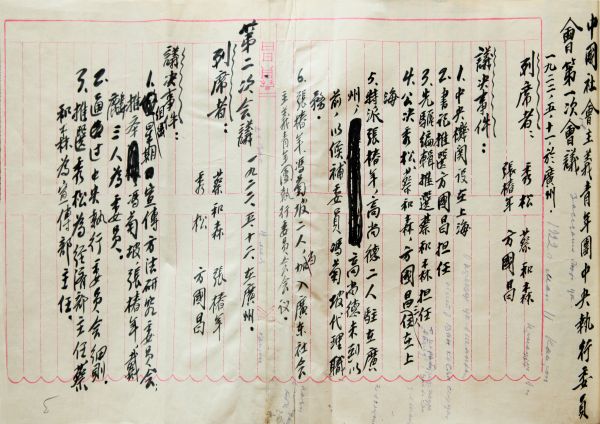 中國社會主義青年團中央执行委員
會第一次會議
一九二二、五、十一於廣州.
列席者： 秀松 蔡和森
張椿年 方國昌
議决事件：
1.中央機関設在上海
2.書記推選方國昌担任
3.先驅編輯推選蔡和森担任
4.公决秀松,蔡和森,方國昌住在上
海
5.特派張椿年,高尚德二人駐在廣
州. 高尚德未到以
前,以候補委員馮菊坡代理職
務.
6.張椿年馮菊坡二人加入廣东社会
主義青年团执行委员会会议.
第二次会議 一九二二、五、十六在廣州.
列席者： 蔡和森 張椿年
秀松 方國昌
議决事件：
1. 星期日宣傳方法研究委員会.
推舉 馮菊坡張椿年
三人為委員.
2.通过中央执行委員会細则.
3.推選秀松為經济部主任蔡
和森為宣傳部主任.